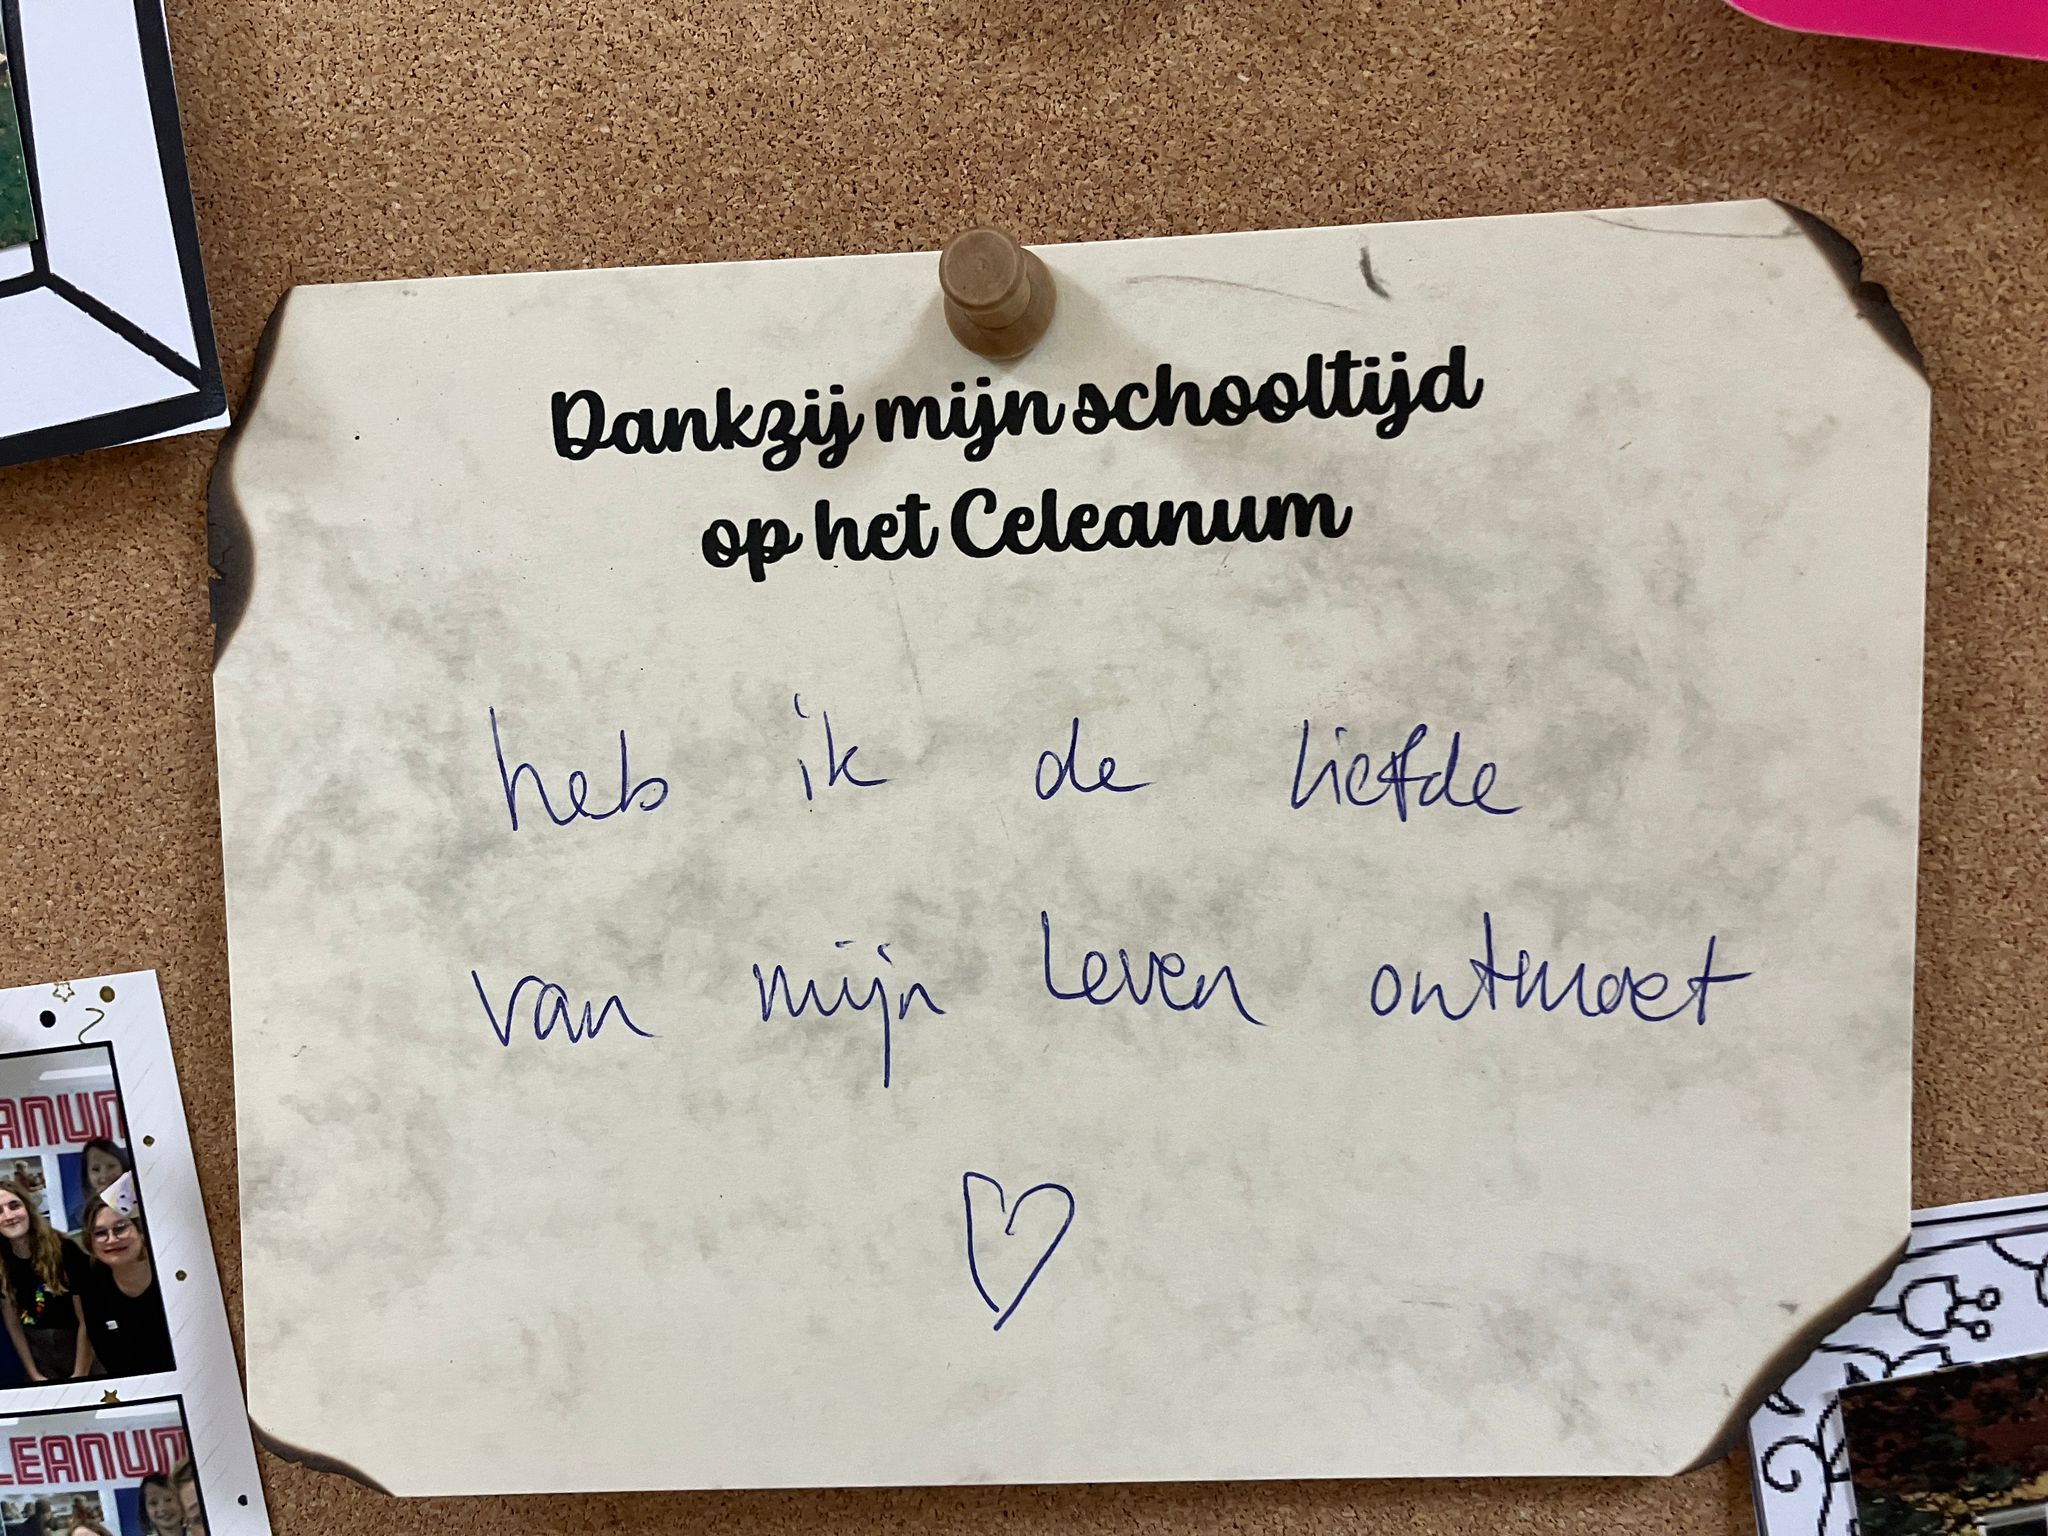 Dankzij mijn schooltijd
op het Celeanum
heb ik de liefde
van mijn leven ontmoet
ANUM
LEANUM